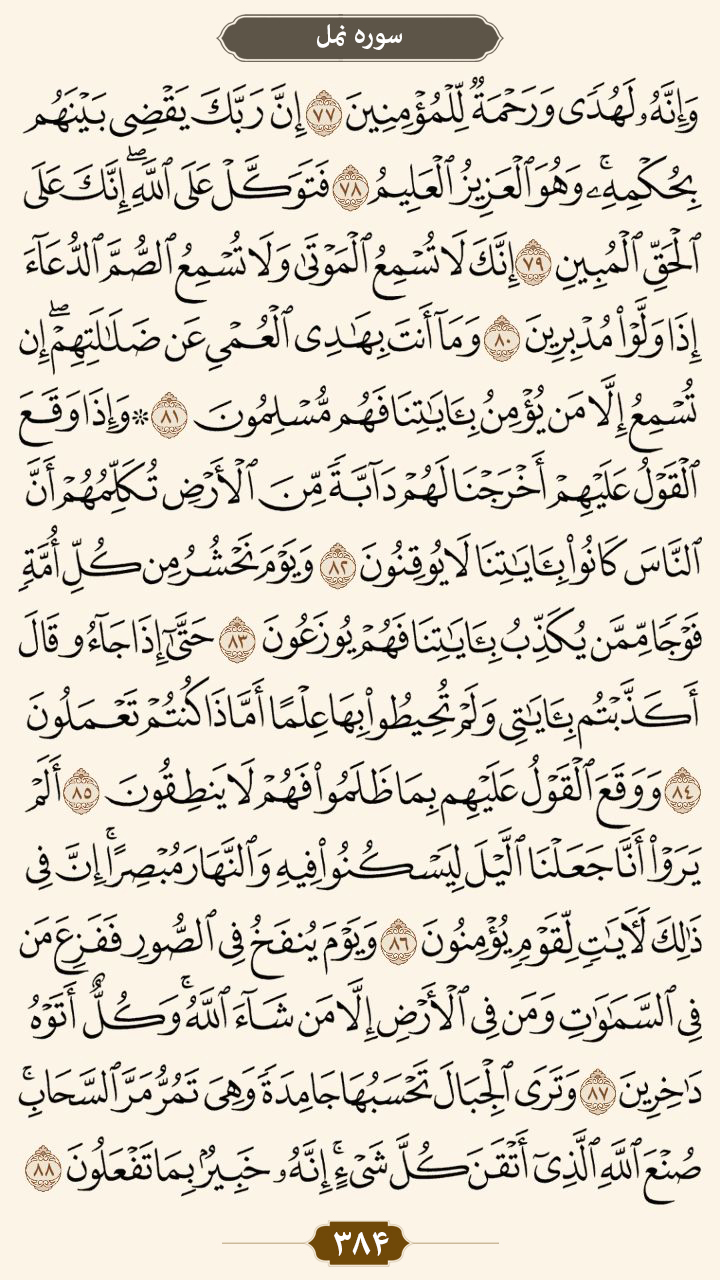 سوره نمل
وَإِنَّهُۥ لَهُدٗى وَرَحۡمَةٞ لِّلۡمُؤۡمِنِينَ ٧٧ إِنَّ رَبَّكَ يَقۡضِي بَيۡنَهُم
بِحُكۡمِهِۦۚ وَهُوَ ٱلۡعَزِيزُ ٱلۡعَلِيمُ ٧٨ فَتَوَكَّلۡ عَلَى ٱللَّهِۖ إِنَّكَ عَلَى
ٱلۡحَقِّ ٱلۡمُبِينِ ٧٩ إِنَّكَ لَا تُسۡمِعُ ٱلۡمَوۡتَىٰ وَلَا تُسۡمِعُ ٱلصُّمَّ ٱلدُّعَآءَ
إِذَا وَلَّوۡاْ مُدۡبِرِينَ ٨٠ وَمَآ أَنتَ بِهَٰدِي ٱلۡعُمۡيِ عَن ضَلَٰلَتِهِمۡۖ إِن
تُسۡمِعُ إِلَّا مَن يُؤۡمِنُ بِـَٔايَٰتِنَا فَهُم مُّسۡلِمُونَ ٨١ ۞وَإِذَا وَقَعَ
ٱلۡقَوۡلُ عَلَيۡهِمۡ أَخۡرَجۡنَا لَهُمۡ دَآبَّةٗ مِّنَ ٱلۡأَرۡضِ تُكَلِّمُهُمۡ أَنَّ
ٱلنَّاسَ كَانُواْ بِـَٔايَٰتِنَا لَا يُوقِنُونَ ٨٢ وَيَوۡمَ نَحۡشُرُ مِن كُلِّ أُمَّةٖ
فَوۡجٗا مِّمَّن يُكَذِّبُ بِـَٔايَٰتِنَا فَهُمۡ يُوزَعُونَ ٨٣ حَتَّىٰٓ إِذَا جَآءُو قَالَ
أَكَذَّبۡتُم بِـَٔايَٰتِي وَلَمۡ تُحِيطُواْ بِهَا عِلۡمًا أَمَّاذَا كُنتُمۡ تَعۡمَلُونَ
٨٤ وَوَقَعَ ٱلۡقَوۡلُ عَلَيۡهِم بِمَا ظَلَمُواْ فَهُمۡ لَا يَنطِقُونَ ٨٥ أَلَمۡ
يَرَوۡاْ أَنَّا جَعَلۡنَا ٱلَّيۡلَ لِيَسۡكُنُواْ فِيهِ وَٱلنَّهَارَ مُبۡصِرًاۚ إِنَّ فِي
ذَٰلِكَ لَأٓيَٰتٖ لِّقَوۡمٖ يُؤۡمِنُونَ ٨٦ وَيَوۡمَ يُنفَخُ فِي ٱلصُّورِ فَفَزِعَ مَن
فِي ٱلسَّمَٰوَٰتِ وَمَن فِي ٱلۡأَرۡضِ إِلَّا مَن شَآءَ ٱللَّهُۚ وَكُلٌّ أَتَوۡهُ
دَٰخِرِينَ ٨٧ وَتَرَى ٱلۡجِبَالَ تَحۡسَبُهَا جَامِدَةٗ وَهِيَ تَمُرُّ مَرَّ ٱلسَّحَابِۚ
صُنۡعَ ٱللَّهِ ٱلَّذِيٓ أَتۡقَنَ كُلَّ شَيۡءٍۚ إِنَّهُۥ خَبِيرُۢ بِمَا تَفۡعَلُونَ ٨٨
۳۸۴